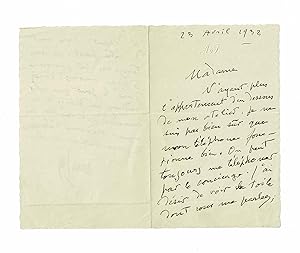 23 Avril 1932
Madame
N'ayant plus
l'appartement du dessus
de mon atelier. je ne
suis pas bien sûr que
mon téléphone fonc-
tionne bien. On peut
toujours me téléphoner
par le concierge. J'ai
désir de voir la toile
dont vous me parlez,